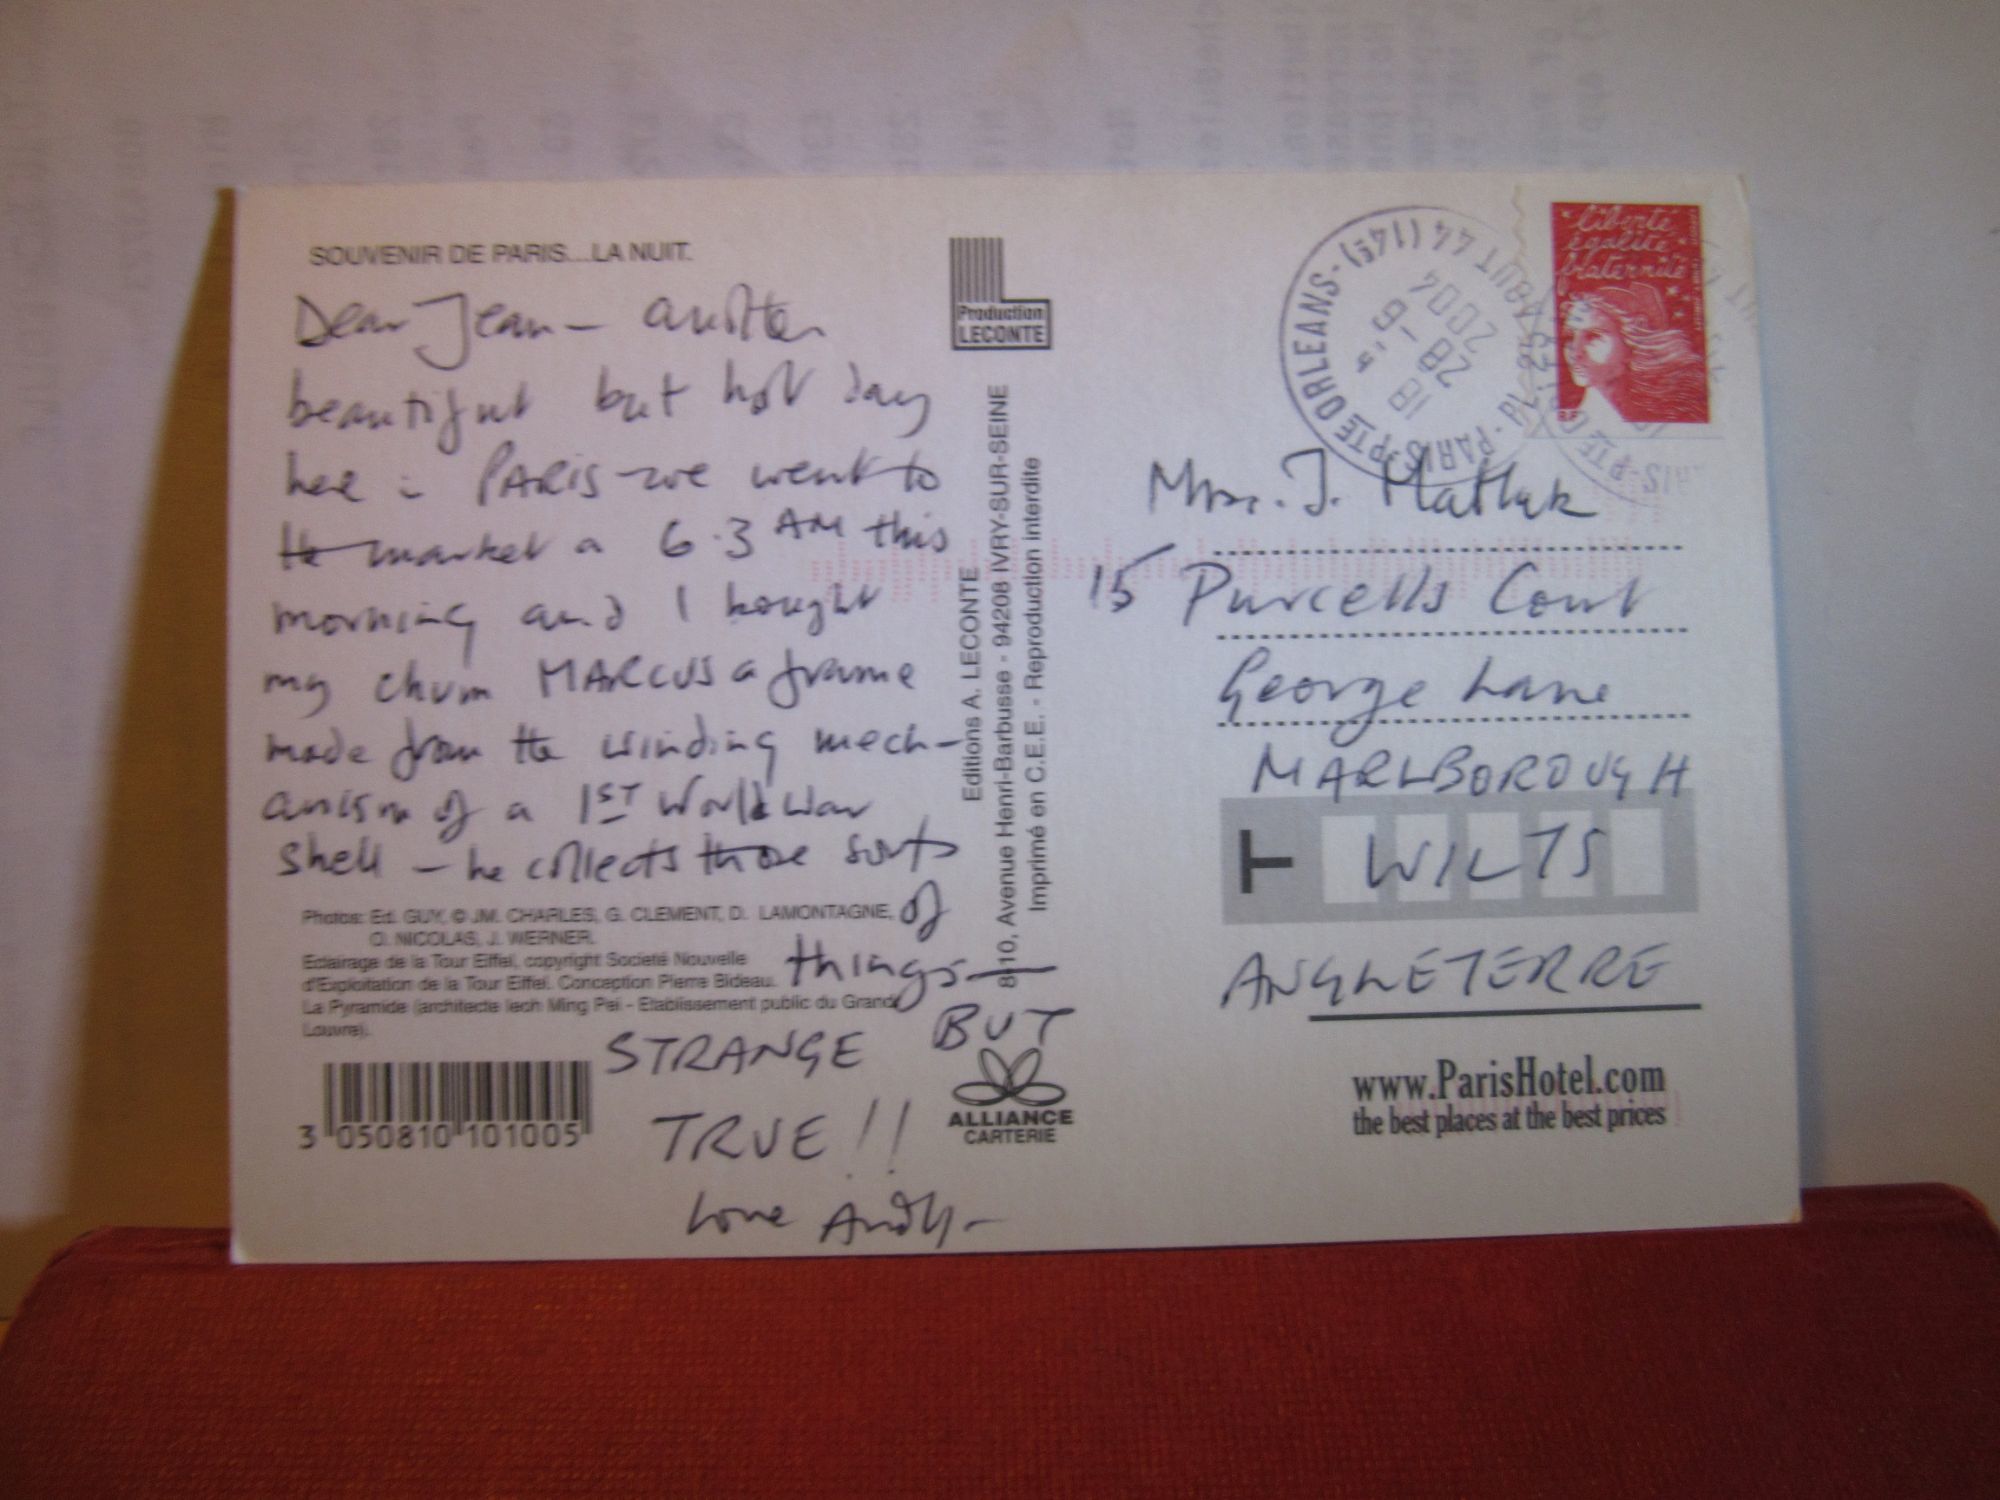 SOUVENIR DE PARIS...LA NUIT.
Dear Jean - another
beautiful but hot day
here in PARIS - we went to
the market a 6.3 AM this
morning and I bought
my chum MARCUS a frame
made from the winding mech-
anism of a 1ST World War
shell - he collects those sorts
of
things -
STRANGE BUT
TRUE!!
Love Andy -
Photos: Ed. GUY, © JM. CHARLES, G. CLEMENT, D. LAMONTAGNE,
O. NICOLAS, J. WERNER.
Eclairage de la Tour Eiffel, copyright Societé Nouvelle
d'Exploitation de la Tour Eiffel. Conception Pierre Bideau.
La Pyramide (architecte Ieoh Ming Pei - Etablissement public du Grand
Louvre).
3 050810 101005
Production
LECONTE
Editions A. LECONTE
8-10, Avenue Henri-Barbusse - 94208 IVRY-SUR-SEINE
Imprimé en C.E.E. - Reproduction interdite
ALLIANCE
CARTERIE
liberté
égalité
fraternité
RF
PARIS-PTE ORLEANS-(14E)
18
28 - 9
2004
Mrs. J.
15 Purcells Court
George Lane
MARLBOROUGH
T WILTS
ANGLETERRE
www.ParisHotel.com
the best places at the best prices